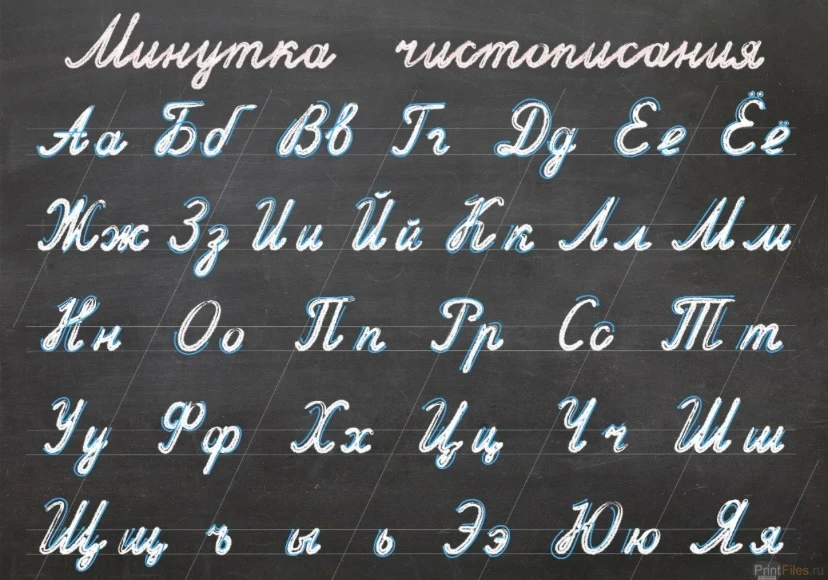 Минутка чистописания
Аа Бб Вв Гг Дд Ее Ёё
Жж Зз Ии Йй Кк Лл Мм
Нн Оо Пп Рр Сс Тт
Уу Фф Хх Цц Чч Шш
Щщ ъ ы ь Ээ Юю Яя
PrintFiles.ru